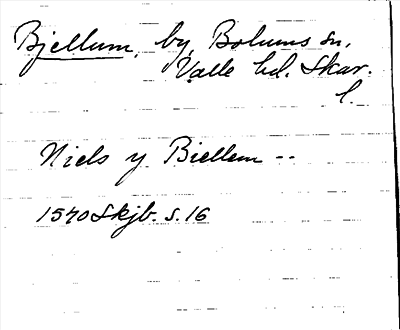 Bjellum, by, Bolums sn,
Valle hd. Skar.
l.
Niels y Biellem --
1570 Skjb. s. 16